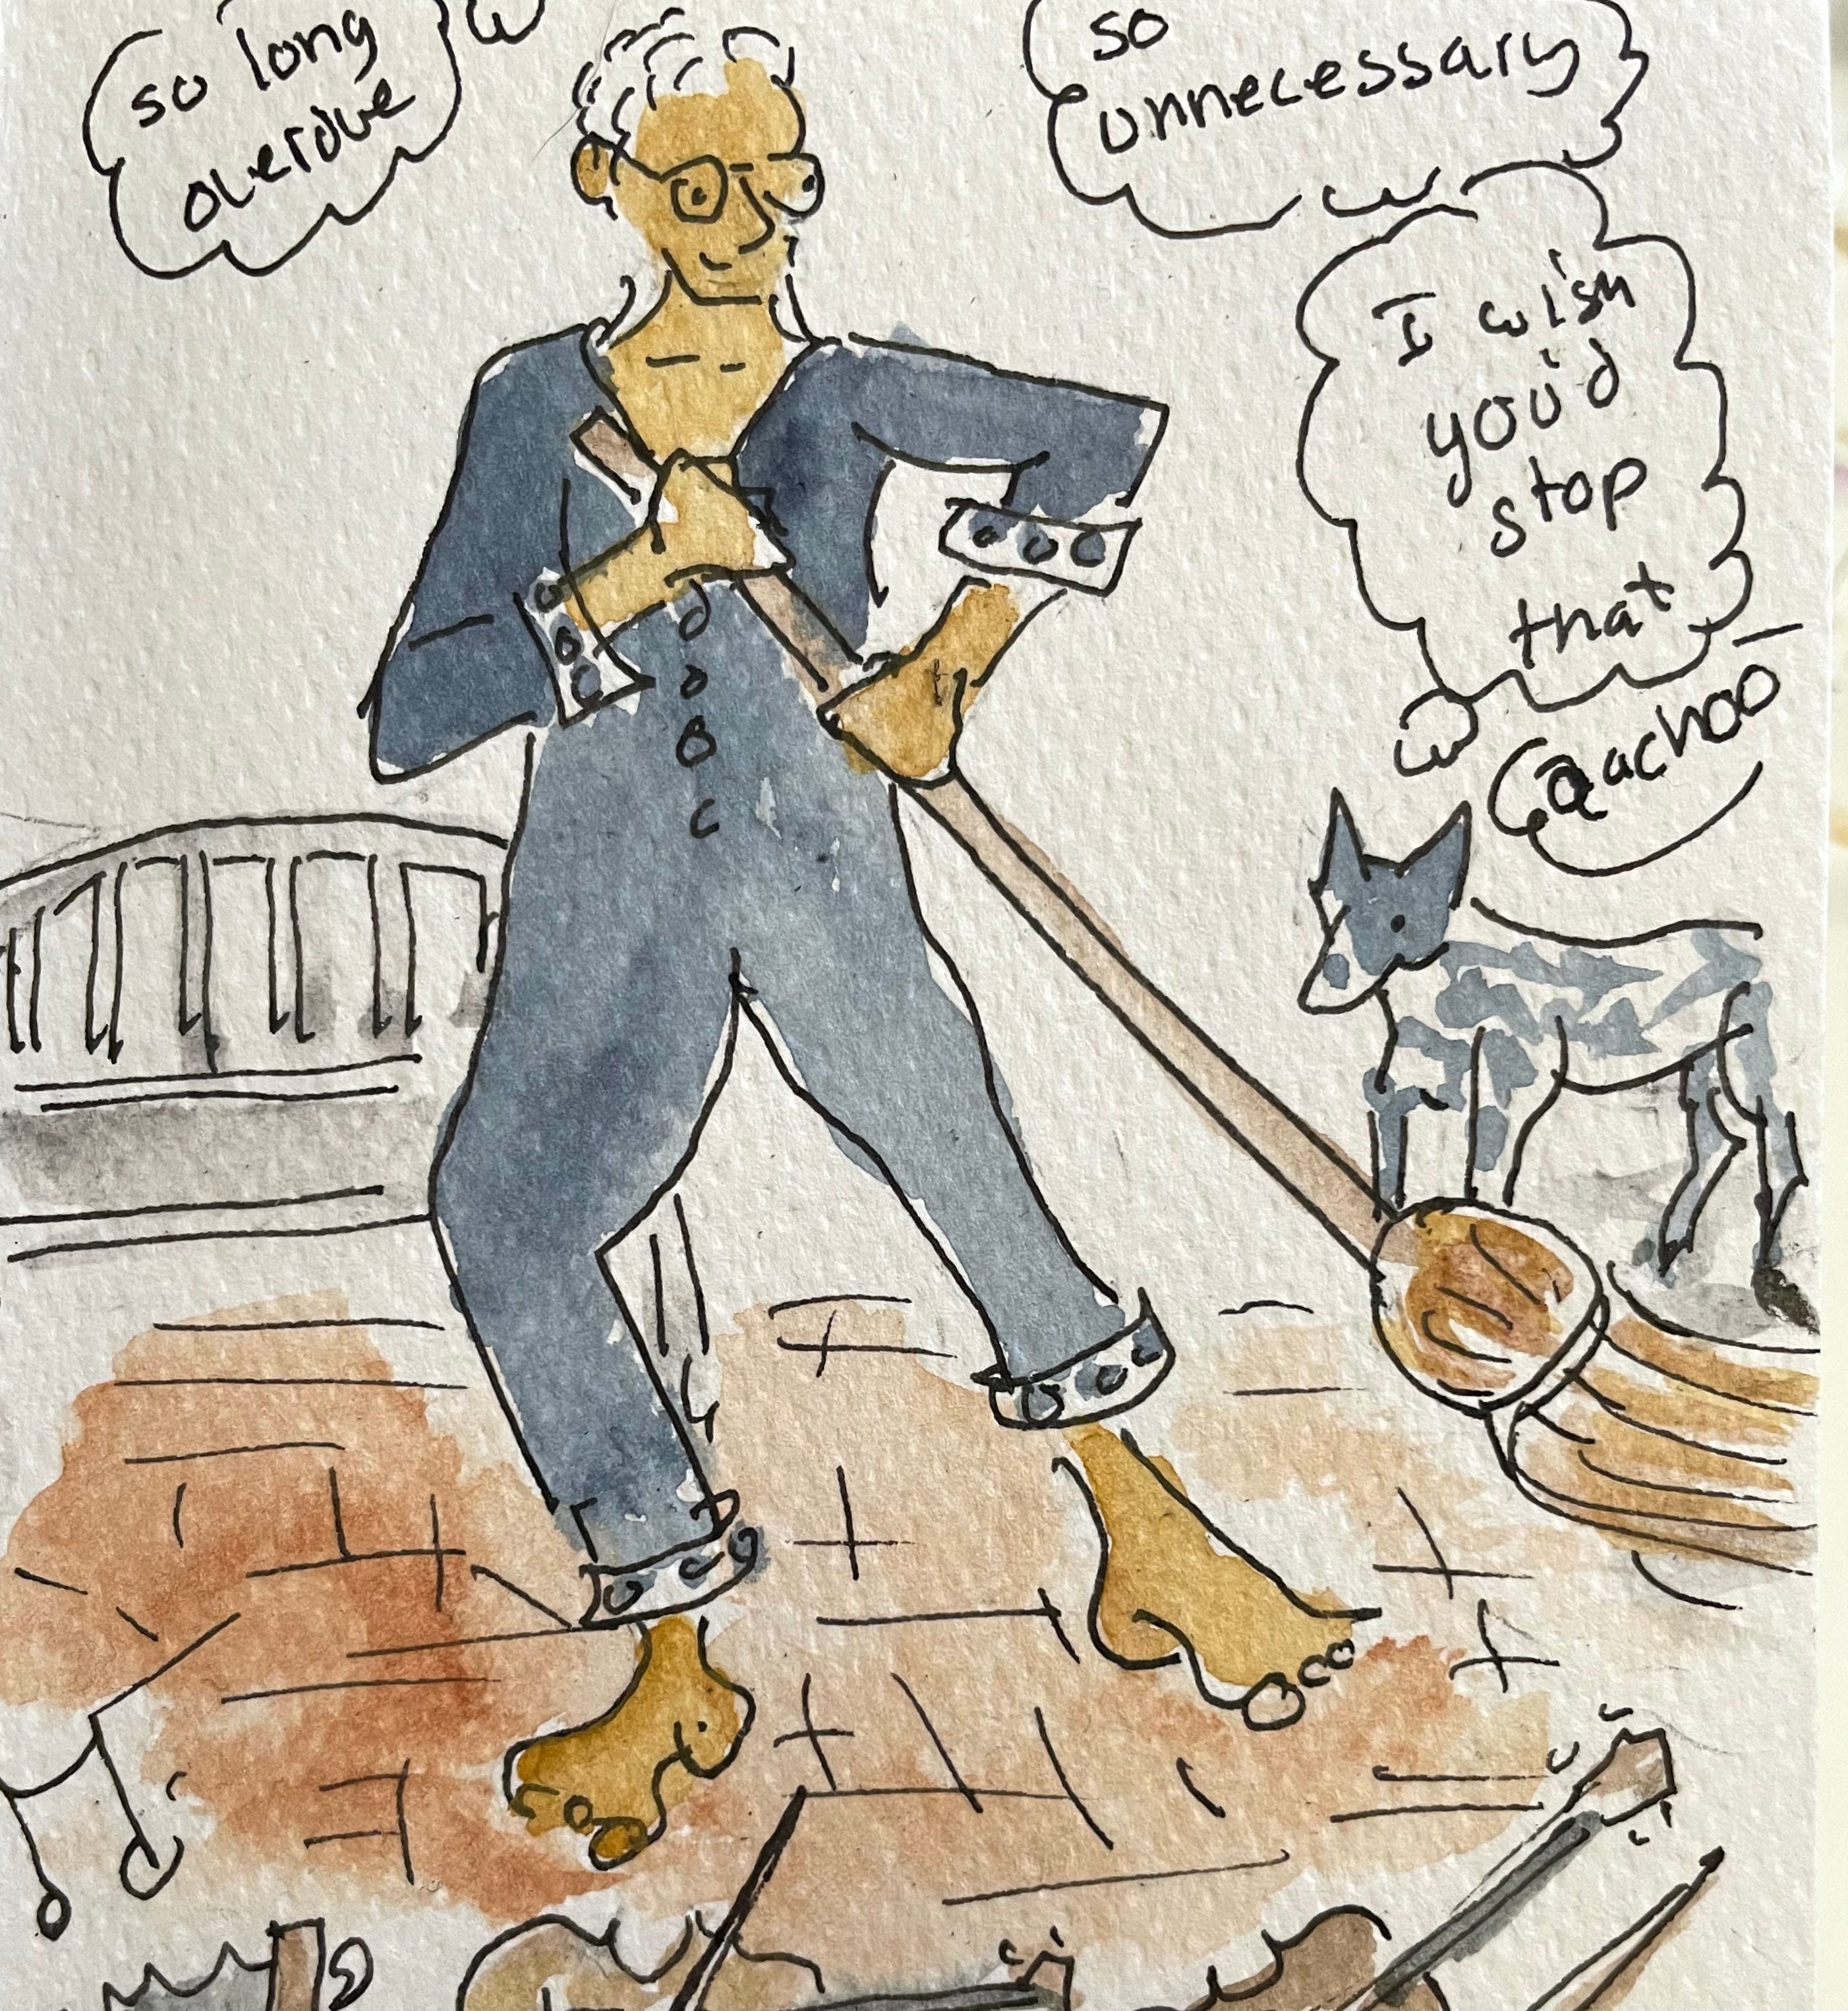 so long
overdue
so
unnecessary
I wish
you'd
stop
that
aachoo